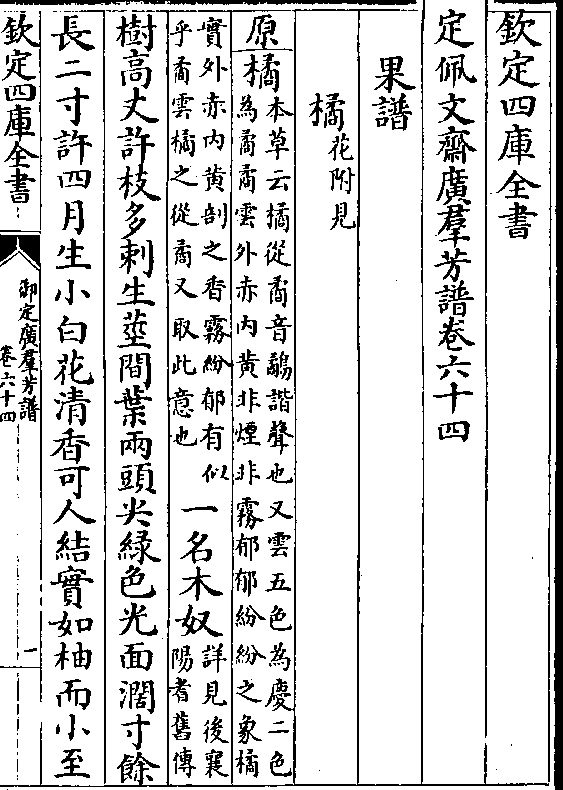 欽定四庫全書
定佩文齋廣羣芳譜卷六十四
果譜
橘花附見
原橘本草云橘從矞音鷸諧聲也又雲五色為慶二色
為矞矞雲外赤内黄非煙非霧郁郁紛紛之象橘
實外赤内黄剖之香霧紛郁有似
乎矞雲橘之從矞又取此意也
一名木奴詳見後襄
陽耆舊傳
樹高丈許枝多刺生莖間葉兩頭尖綠色光面濶寸餘
長二寸許四月生小白花清香可人結實如柚而小至
欽定四庫全書
御定廣羣芳譜
卷六十四
一